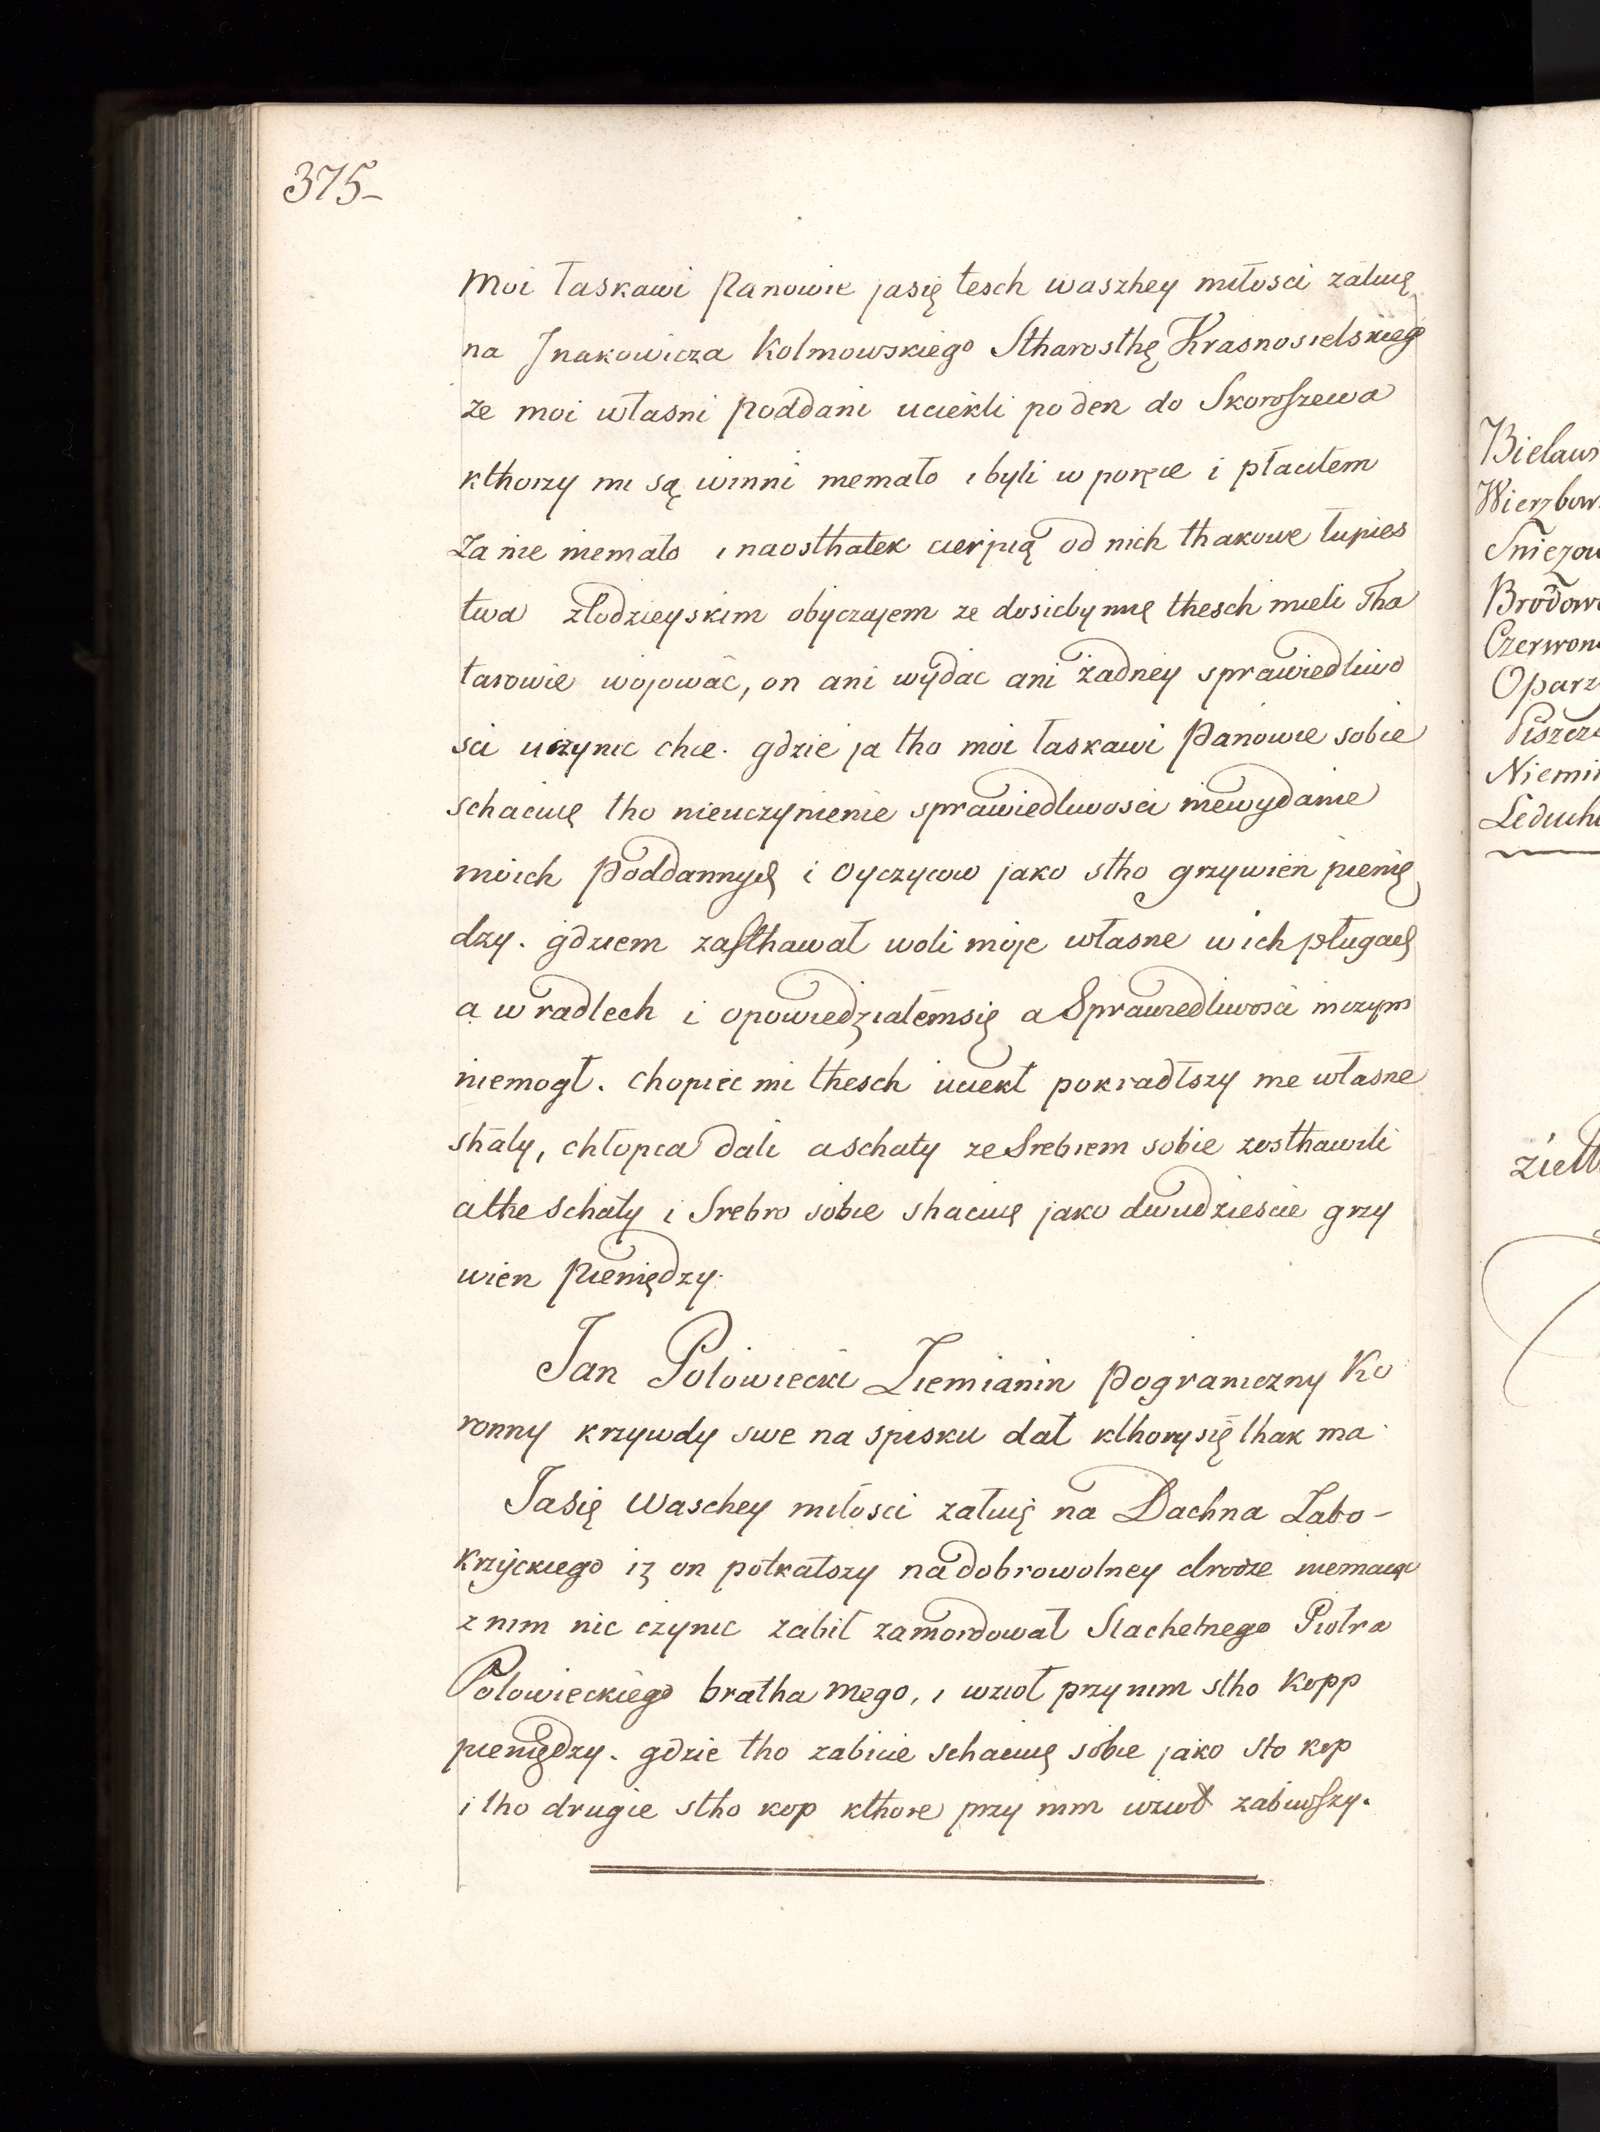 375
Moi łaskawi Panowie jasię tesch waszhey miłosci załuię
na Jnakowicza Kolmowskiego Stharosthę Krasnosielskieg
ze moi własni poddani uciekli po den do Skoroszewa
kthorzy mi są winni niemało i byli w poręce i płaciłem
Za nie niemało i naosthatek cierpią od nich thakowe łupies
twa złodzieyskim obyczajem ze dosichymnę thesch mieli Tha
tarowie wojowác, on ani wydac ani żadney sprawiedliwo
sci uczynic chce. gdzie ja tho moi łaskawi Panowie sobie
schacuię tho nieuczynienie sprawiedliwosci niewydanie
moich Poddannych i Oyczycow jako stho grzywien pienię
dzy. gdziem zasthawał woli moje własne w ich pługach
a w radlech i opowiedziałemsię a Sprawiedliwosci mczym
niemogł. chopiec mi thesch uciekł pokradłszy me własne
shaty, chłopca dali a schaty ze Srebrem sobie zosthawili
a the Schaty i Srebro sobie shacuię jako dwudziescie grzy
wien Pieniędzy.
Jan Połowiecki Ziemianin Pograniczny Ko
ronny krzywdy swe na spisku dał kthory się thak ma
Jasię Waschey miłosci załuię na Dachna Zabo-
krzyckiego iz on potkatszy nadobrowolney drodze niemaiąc
z nim nic czynic zabił zamordował Slachetnego Piotra
Połowieckiego bratha mego, i wzioł przy nim stho Kopp
pieniędzy. gdzie tho zabicie schacuię sobie jako sto kop
i tho drugie stho kop kthore przy nim wzioł zabiwszy.
Wierzbow
Brodow
Czerwon
Oparz
Niemi
Leduch